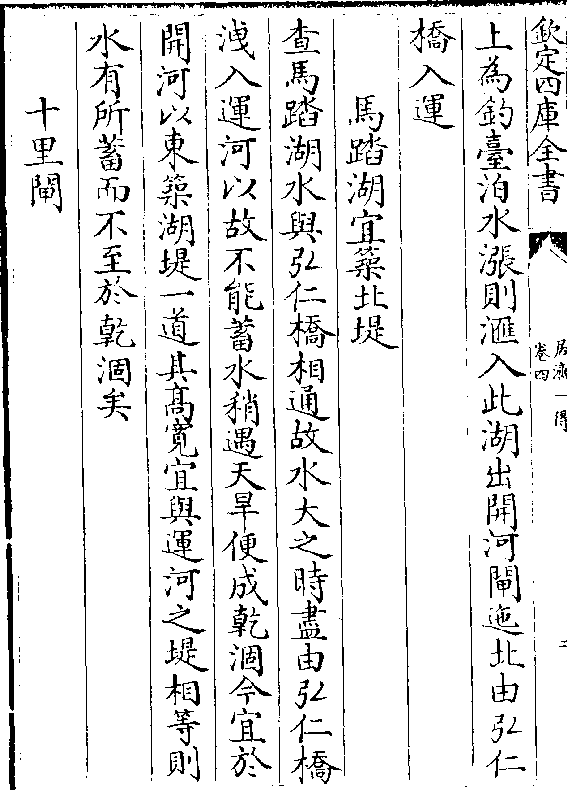 欽定四庫全書
居濟一得
卷四
二
上為釣臺泊水漲則滙入此湖出開河閘迤北由弘仁
橋入運
馬踏湖宜築北堤
查馬踏湖水與弘仁橋相通故水大之時盡由弘仁橋
洩入運河以故不能蓄水稍遇天旱便成乾涸今宜於
開河以東築湖堤一道其髙寛宜與運河之堤相等則
水有所蓄而不至於乾涸矣
十里閘